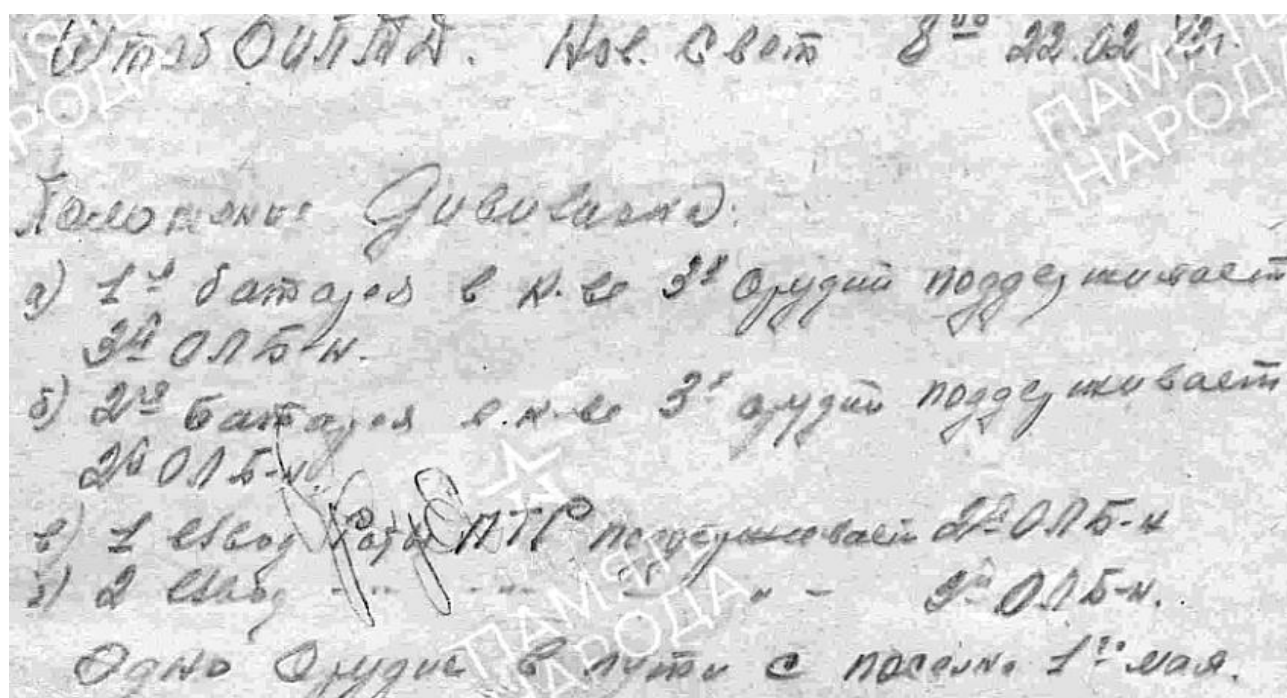 Штаб ОИПТД. Нов. Свет 8⁰⁰ 22.02.42г.
Положение Дивизиона.
а) 1ая батарея в к-ве 3х орудий поддерживает
3й ОЛБ-н.
б) 2ая батарея в к-ве 3х орудий поддерживает
2й ОЛБ-н.
в) 1 взвод Роты ПТР поддерживает 2й ОЛБ-н
г) 2 взвод -"- -"- -"- 3й ОЛБ-н.
Одно орудие в пути с поселка 1го мая.
ПАМЯТЬ
НАРОДА